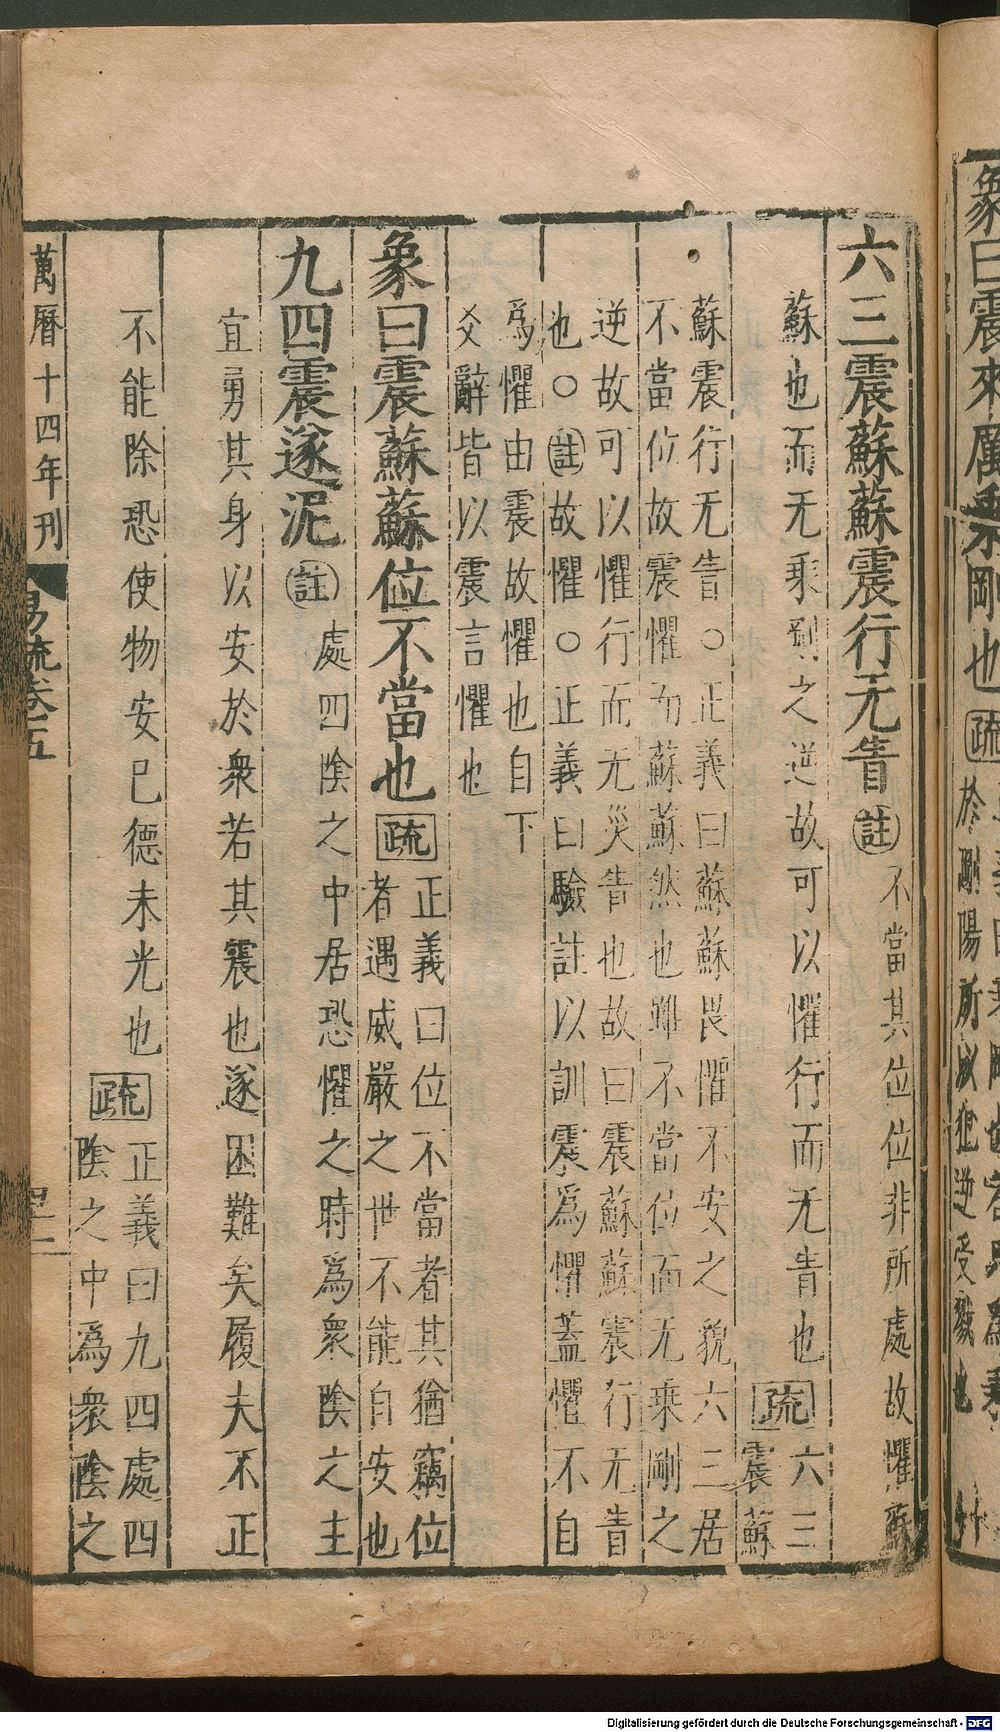 六三震蘇蘇震行无眚註不當其位位非所處故懼蘇
蘇也而无乘剛之逆故可以懼行而无眚也疏六三
震蘇
蘇震行无眚○正義曰蘇蘇畏懼不安之貌六三居
不當位故震懼而蘇蘇然也雖不當位而无乗剛之
逆故可以懼行而无災眚也故曰震蘇蘇震行无眚
也○註故懼○正義曰驗註以訓震爲懼蓋懼不自
爲懼由震故懼也自下
爻辭皆以震言懼也
象曰震蘇蘇位不當也疏正義曰位不當者其猶竊位
者遇威嚴之世不能自安也
九四震遂泥註處四陰之中居恐懼之時爲衆陰之主
宜勇其身以安於衆若其震也遂困難矣履夫不正
不能除恐使物安已德未光也疏正義曰九四處四
陰之中爲衆陰之
萬曆十四年刊
易疏卷五
象曰震來厲乘剛也疏
於剛陽所以犯逆受戮也
Digitalisierung gefördert durch die Deutsche Forschungsgemeinschaft - DFG